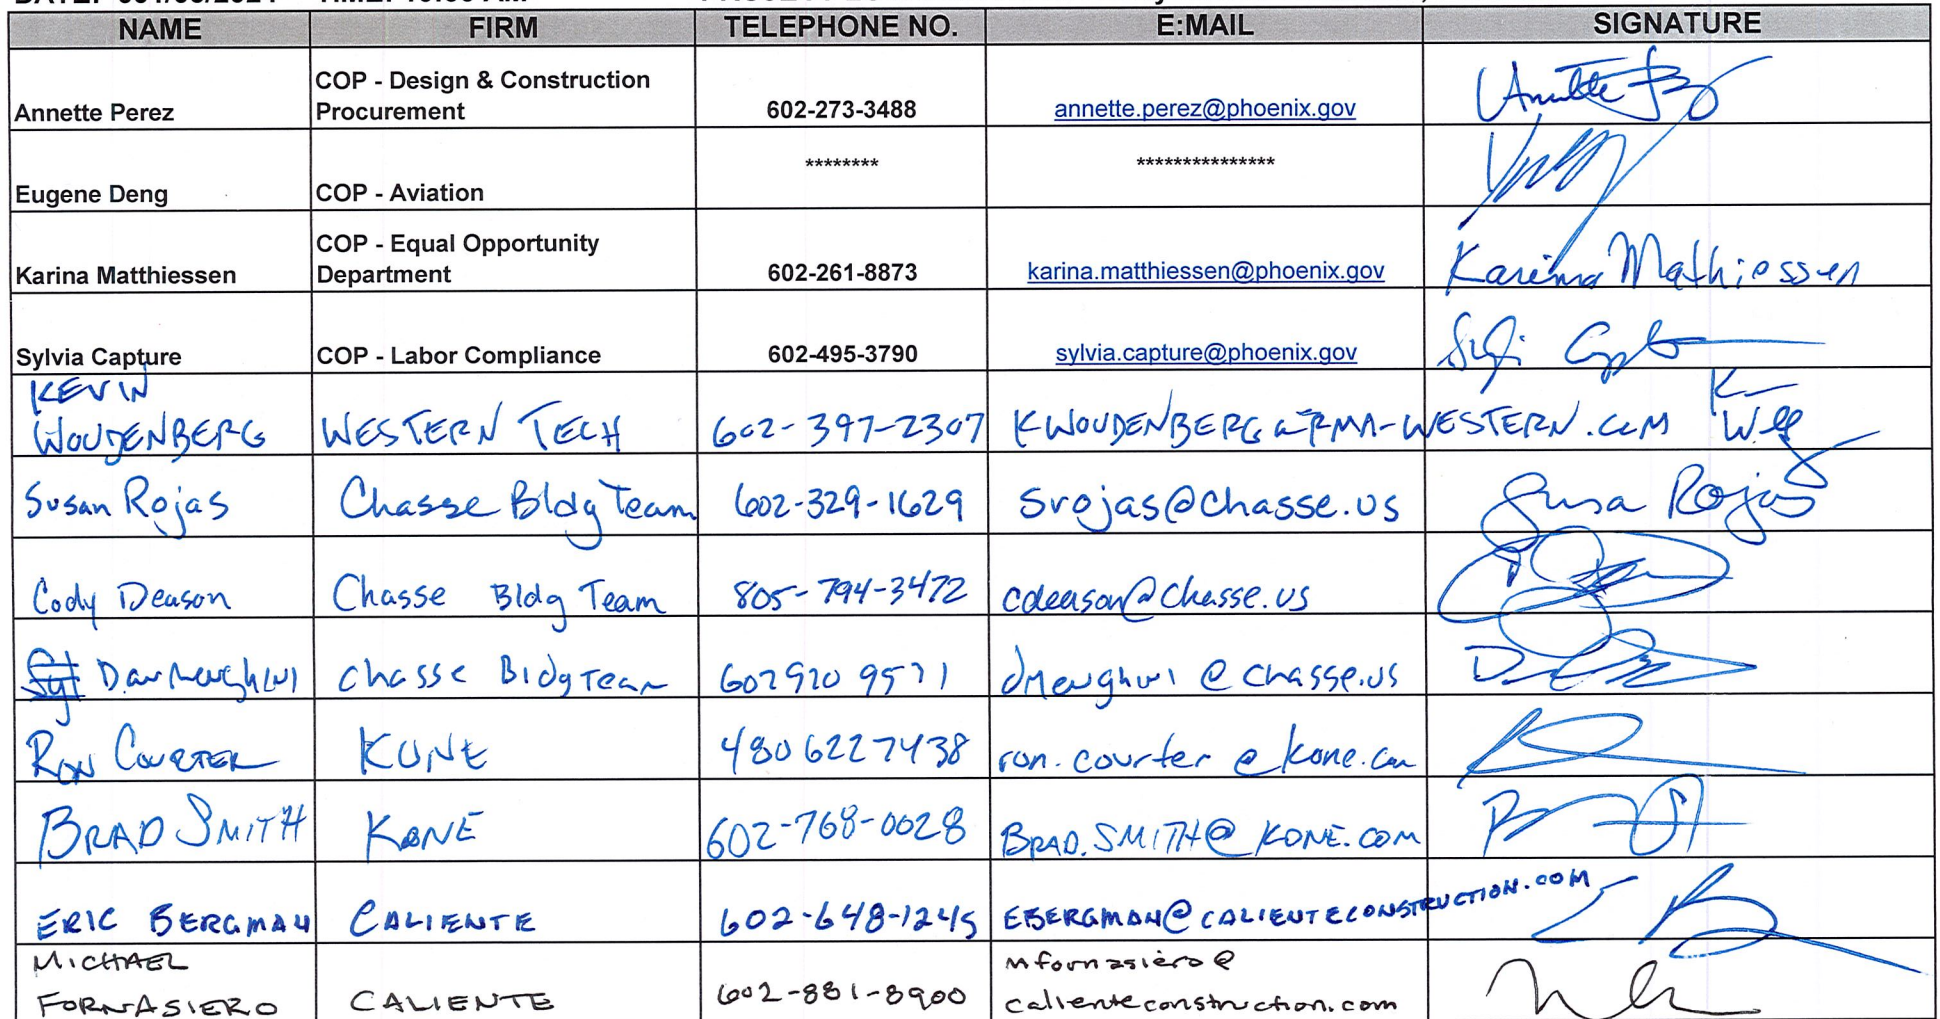 NAME FIRM TELEPHONE NO. E:MAIL SIGNATURE
COP - Design & Construction
Annette Perez Procurement 602-273-3488 annette.perez@phoenix.gov Annette
******** ***************
Eugene Deng COP - Aviation
COP - Equal Opportunity
Karina Matthiessen Department 602-261-8873 karina.matthiessen@phoenix.gov Karina Mathiessen
Sylvia Capture COP - Labor Compliance 602-495-3790 sylvia.capture@phoenix.gov
KEVIN
WOUDENBERG WESTERN TECH 602-397-2307 KWOUDENBERG@RMA-WESTERN.COM
Susan Rojas Chasse Bldg Team 602-329-1629 srojas@chasse.us Susa Rojas
Cody Deason Chasse Bldg Team 805-794-3472 cdeason@chasse.us
Dan Menghini Chasse Bldg Team 602 920 9571 dmenghini@chasse.us
RON COURTER KONE 480 622 7438 ron.courter@kone.com
BRAD SMITH KONE 602-768-0028 BRAD.SMITH@KONE.COM
ERIC BERGMAN CALIENTE 602-648-1245 EBERGMAN@CALIENTECONSTRUCTION.COM
MICHAEL mfornasiero@
FORNASIERO CALIENTE 602-881-8900 calienteconstruction.com